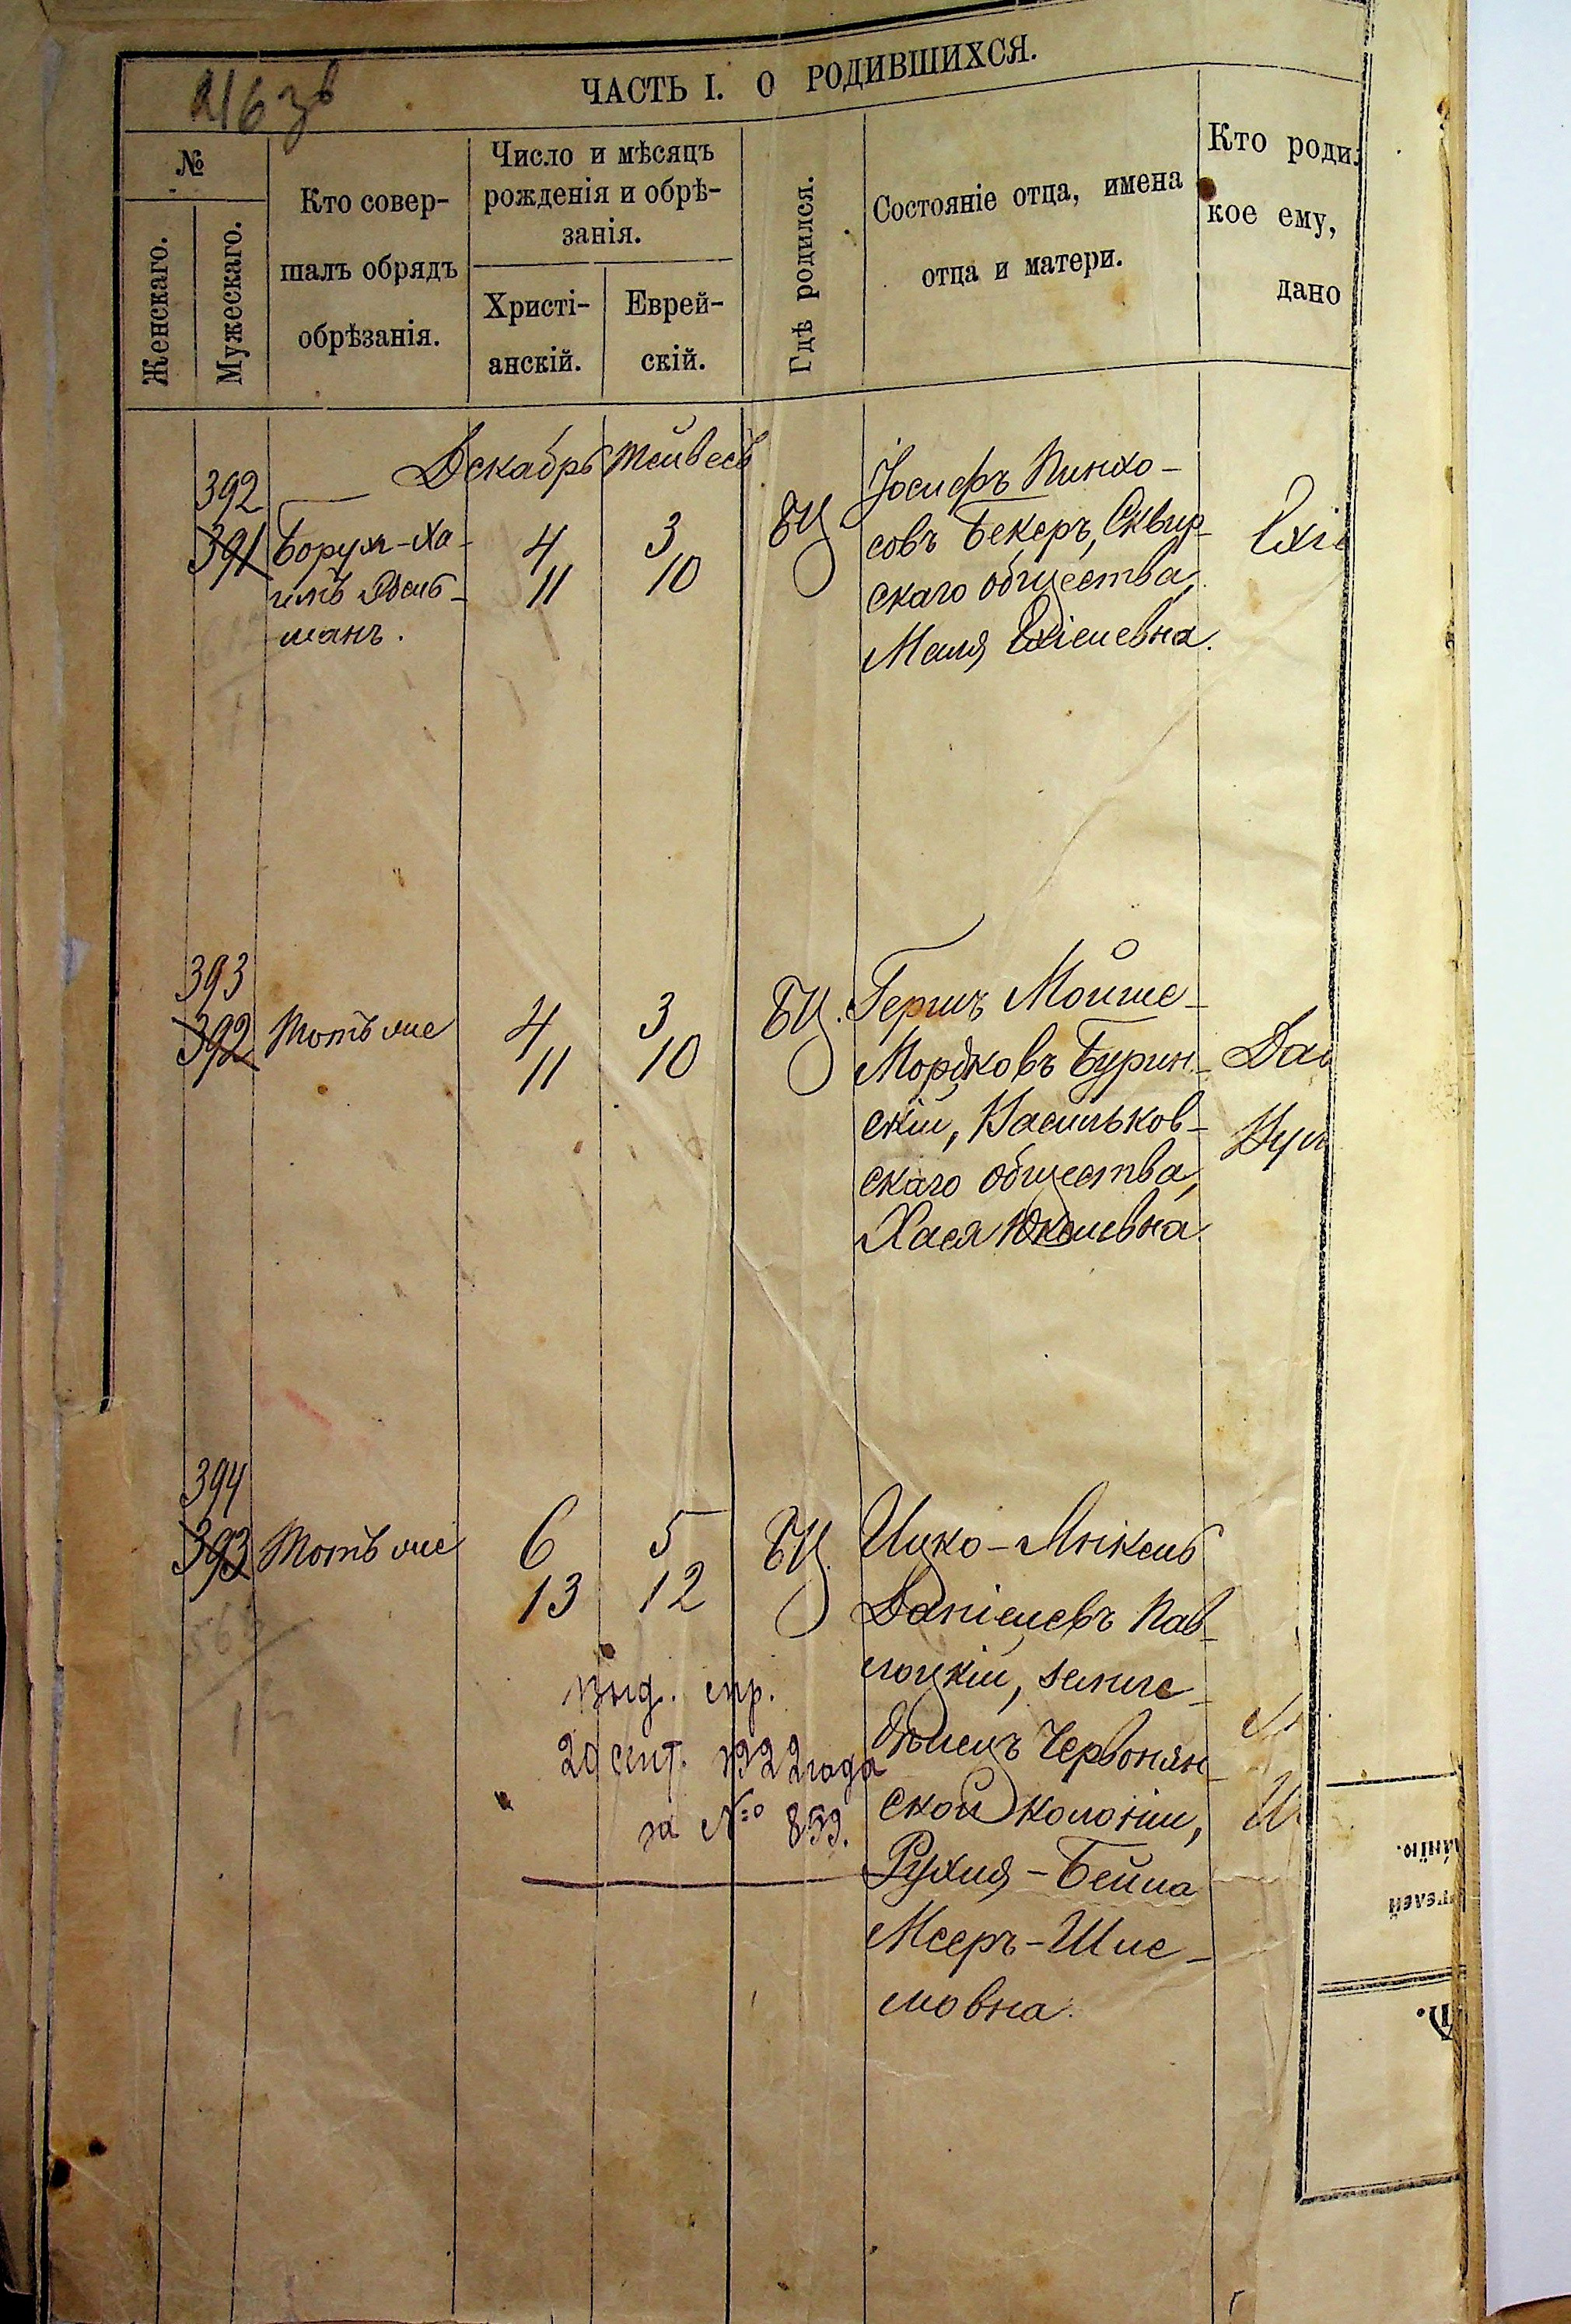 216 зв
ЧАСТЬ I. О РОДИВШИХСЯ.
№
Женскаго.
Мужескаго.
Кто совер-
шалъ обрядъ
обрѣзанія.
Число и мѣсяцъ
рожденія и обрѣ-
занія.
Христі-
анскій.
Еврей-
скій.
Гдѣ родился.
Состояніе отца, имена
отца и матери.
Кто роди
кое ему,
дано
Декабрь Тейвесъ
392
391
Борух-Ха-
имъ
манъ.
4
11
3
10
БЦ.
Іосифъ Пинхо-
совъ Бекеръ, Сквир-
скаго общества,
Маля Ехіелевна.
Ехіе
393
392
Тотъ же
4
11
3
10
БЦ.
Гершъ Мойше-
Мордковъ Бурин-
скій, Васильков-
скаго общества,
Хася Юкелевна
Дав
Вул
394
393
Тотъ же
6
13
5
12
БЦ.
Ицко-Янкель
Даніелевъ Пав-
лоцкій, земле-
дѣлецъ Червонян-
ской колоніи,
Рухля-Бейла
Мееръ-Шле-
мовна.
И
выд. спр.
20 сент. 1922 года
за № 859.